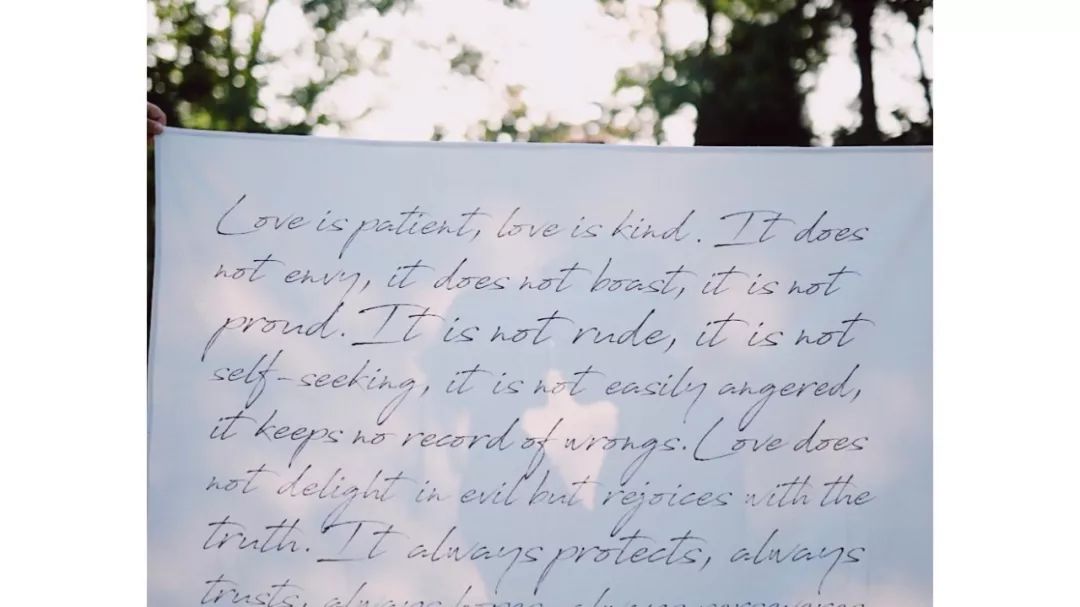 Love is patient, love is kind. It does
not envy, it does not boast, it is not
proud. It is not rude, it is not
self-seeking, it is not easily angered,
it keeps no record of wrongs. Love does
not delight in evil but rejoices with the
truth. It always protects, always
trusts, always hopes, always perseveres